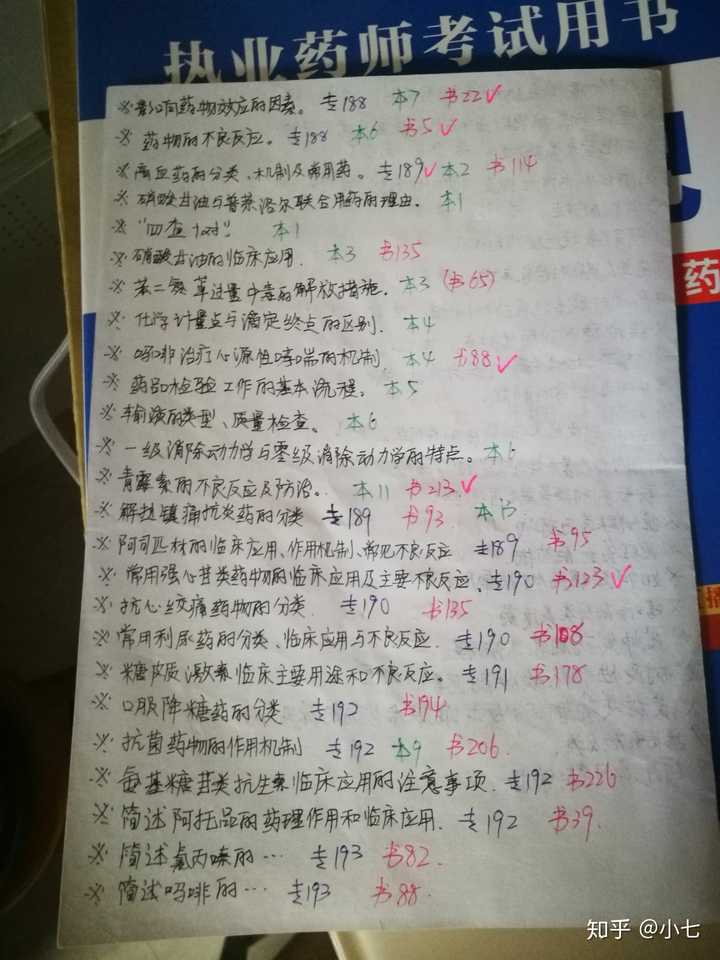 执业药师考试用书
药
※影响药物效应的因素。专188 本7 书22✓
※药物的不良反应。专188 本6 书5✓
※高血药的分类、机制及常用药。专189✓本2 书114
※硝酸甘油与普萘洛尔联合用药的理由。本1
※"四查十对" 本1
※硝酸甘油的临床应用. 本3 书135
※苯二氮䓬过量中毒的解放措施. 本3 (书65)
※化学计量点与滴定终点的区别. 本4
※吗啡治疗心源性哮喘的机制 本4 书88✓
※药品检验工作的基本流程. 本5
※输液的类型、质量检查。 本6
※一级消除动力学与零级消除动力学的特点。本6
※青霉素的不良反应及防治。 本11 书213✓
※解热镇痛抗炎药的分类 专189 书93 本13
※阿司匹林的临床应用、作用机制、常见不良反应 专189 书95
※常用强心苷类药物的临床应用及主要不良反应、专190 书123✓
※抗心绞痛药物的分类. 专190 书135
※常用利尿药的分类、临床应用与不良反应. 专190 书108
※糖皮质激素临床主要用途和不良反应。专191 书178
※口服降糖药的分类 专192 书194
※抗菌药物的作用机制 专192 本9 书206.
※氨基糖苷类抗生素临床应用的注意事项. 专192 书226
※简述阿托品的药理作用和临床应用. 专192 书39.
※简述氯丙嗪的… 专193 书82.
※简述吗啡的… 专193 书88.
知乎 @小七